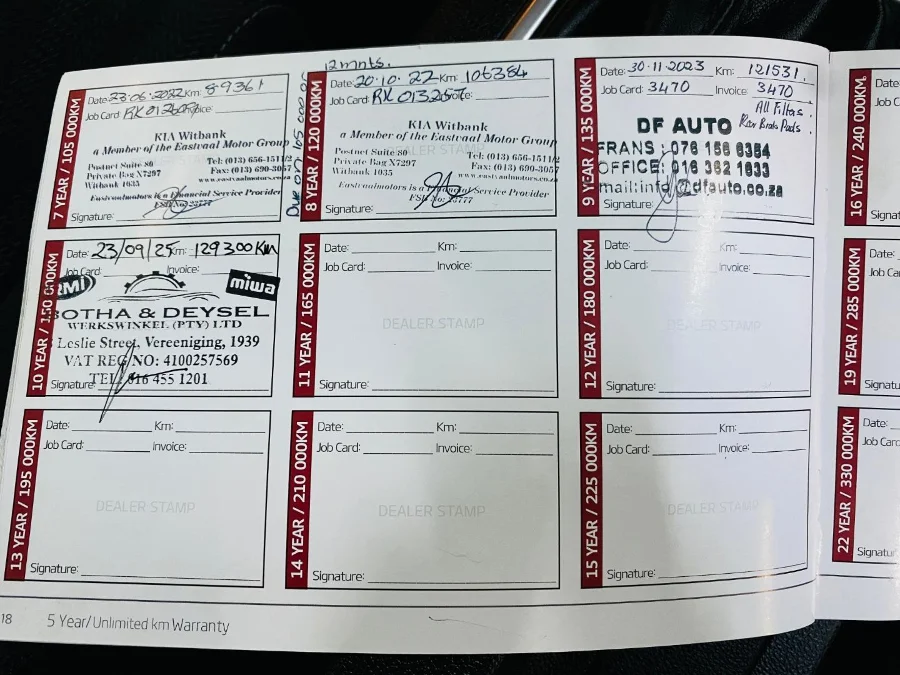 7 YEAR / 105 000KM
Date: 23·06·2022 Km: 89361
Job Card: RK Invoice:
KIA Witbank
a Member of the Eastvaal Motor Group
Postnet Suite 80
Private Bag X7297
Witbank 1035
Tel: (013) 656-1511/2
Fax: (013) 690-3057
www.eastvaalmotors.co.za
Eastvaalmotors is a Financial Service Provider
FSP No: 23777
Signature:
Due on 105 000 or
12 mnts.
8 YEAR / 120 000KM
Date: 20·10·22 Km: 106384
Job Card: RK 013257
KIA Witbank
a Member of the Eastvaal Motor Group
Postnet Suite 80
Private Bag X7297
Witbank 1035
Tel: (013) 656-1511/2
Fax: (013) 690-3057
www.eastvaalmotors.co.za
Eastvaalmotors is a Financial Service Provider
FSP No: 23777
Signature:
9 YEAR / 135 000KM
Date: 30·11·2023 Km: 121531.
Job Card: 3470 Invoice: 3470
All Filters.
Rear Brake Pads.
DF AUTO
FRANS : 076 156 6364
OFFICE: 016 362 1633
mail:info@dfauto.co.za
Signature:
16 YEAR / 240 000KM
Date:
Job C
Signat
10 YEAR / 150 000KM
Date: 23/09/25 Km: 129300KM
Job Card: Invoice:
RMI
miwa
BOTHA & DEYSEL
WERKSWINKEL (PTY) LTD
Leslie Street, Vereeniging, 1939
VAT REG NO: 4100257569
TEL: 016 455 1201
Signature:
11 YEAR / 165 000KM
Date: Km:
Job Card: Invoice:
DEALER STAMP
Signature:
12 YEAR / 180 000KM
Date: Km:
Job Card: Invoice:
DEALER STAMP
Signature:
19 YEAR / 285 000KM
Date:
Job Ca
Signatu
13 YEAR / 195 000KM
Date: Km:
Job Card: Invoice:
DEALER STAMP
Signature:
14 YEAR / 210 000KM
Date: Km:
Job Card: Invoice:
DEALER STAMP
Signature:
15 YEAR / 225 000KM
Date: Km:
Job Card: Invoice:
DEALER STAMP
Signature:
22 YEAR / 330 000KM
Date:
Job Card
Signatur
18 5 Year/Unlimited km Warranty